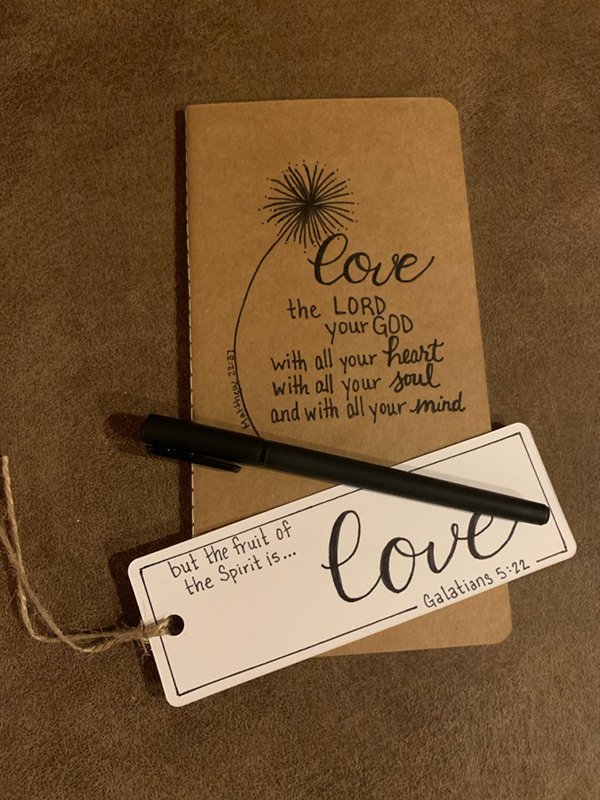 love
the LORD
your GOD
with all your heart
with all your soul
and with all your mind
Matthew 22:37
but the fruit of
the Spirit is...
love
Galatians 5:22